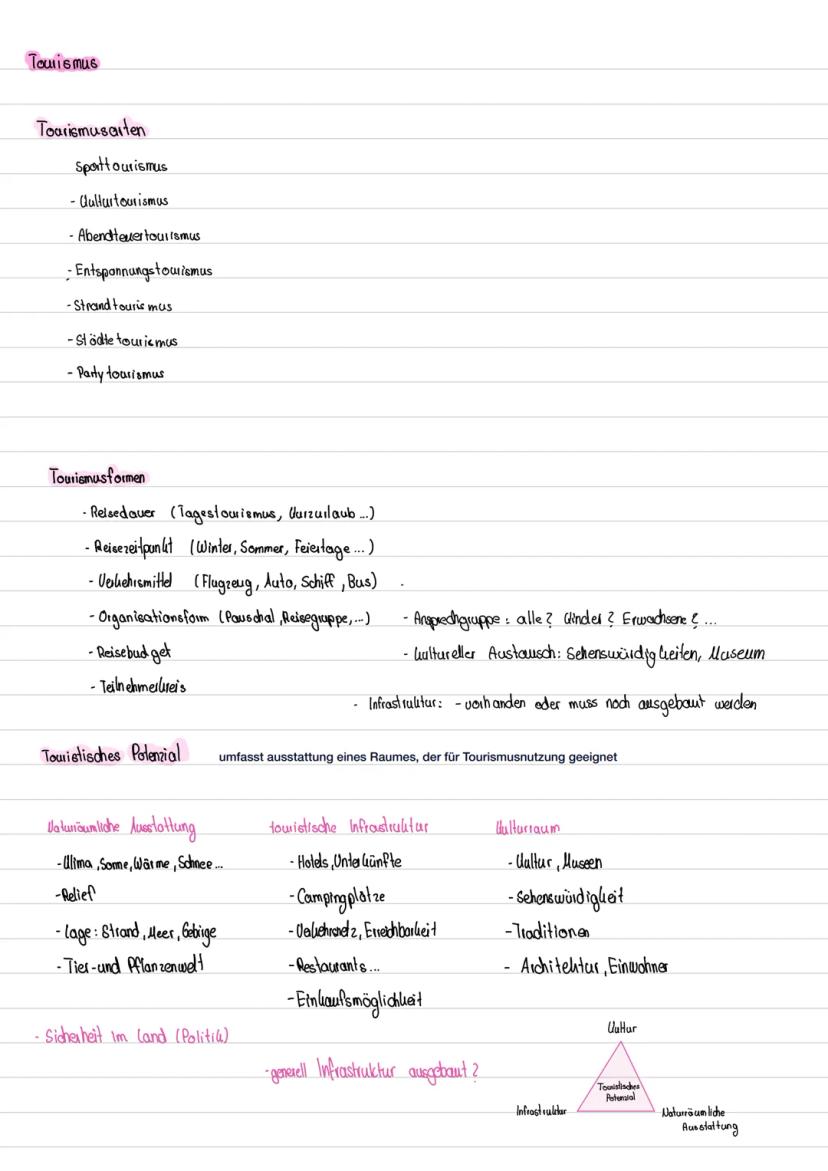 Tourismus
Tourismusarten
Sporttourismus
- Kulturtourismus
- Abendteuertourismus
- Entspannungstourismus
- Strandtourismus
- Städtetourismus
- Partytourismus
Tourismusformen
- Reisedauer (Tagestourismus, Kurzurlaub ...)
- Reisezeitpunkt (Winter, Sommer, Feiertage ...)
- Verkehrsmittel (Flugzeug, Auto, Schiff, Bus)
- Organisationsform (Pauschal, Reisegruppe, ...)
- Ansprechgruppe: alle? Kinder? Erwachsene? ...
- Reisebudget
- kultureller Austausch: Sehenswürdigkeiten, Museum
- Teilnehmerkreis
- Infrastruktur: - vorhanden oder muss noch ausgebaut werden
Touristisches Potenzial umfasst ausstattung eines Raumes, der für Tourismusnutzung geeignet
Naturräumliche Ausstattung touristische Infrastruktur Kulturraum
- Klima, Sonne, Wärme, Schnee ... - Hotels, Unterkünfte - Kultur, Museen
- Relief - Campingplätze - Sehenswürdigkeit
- Lage: Strand, Meer, Gebirge - Verkehrsnetz, Erreichbarkeit - Traditionen
- Tier- und Pflanzenwelt - Restaurants ... - Architektur, Einwohner
- Einkaufsmöglichkeit
- Sicherheit im Land (Politik)
- generell Infrastruktur ausgebaut?
Kultur
Touristisches
Potenzial
Infrastruktur Naturräumliche
Ausstattung